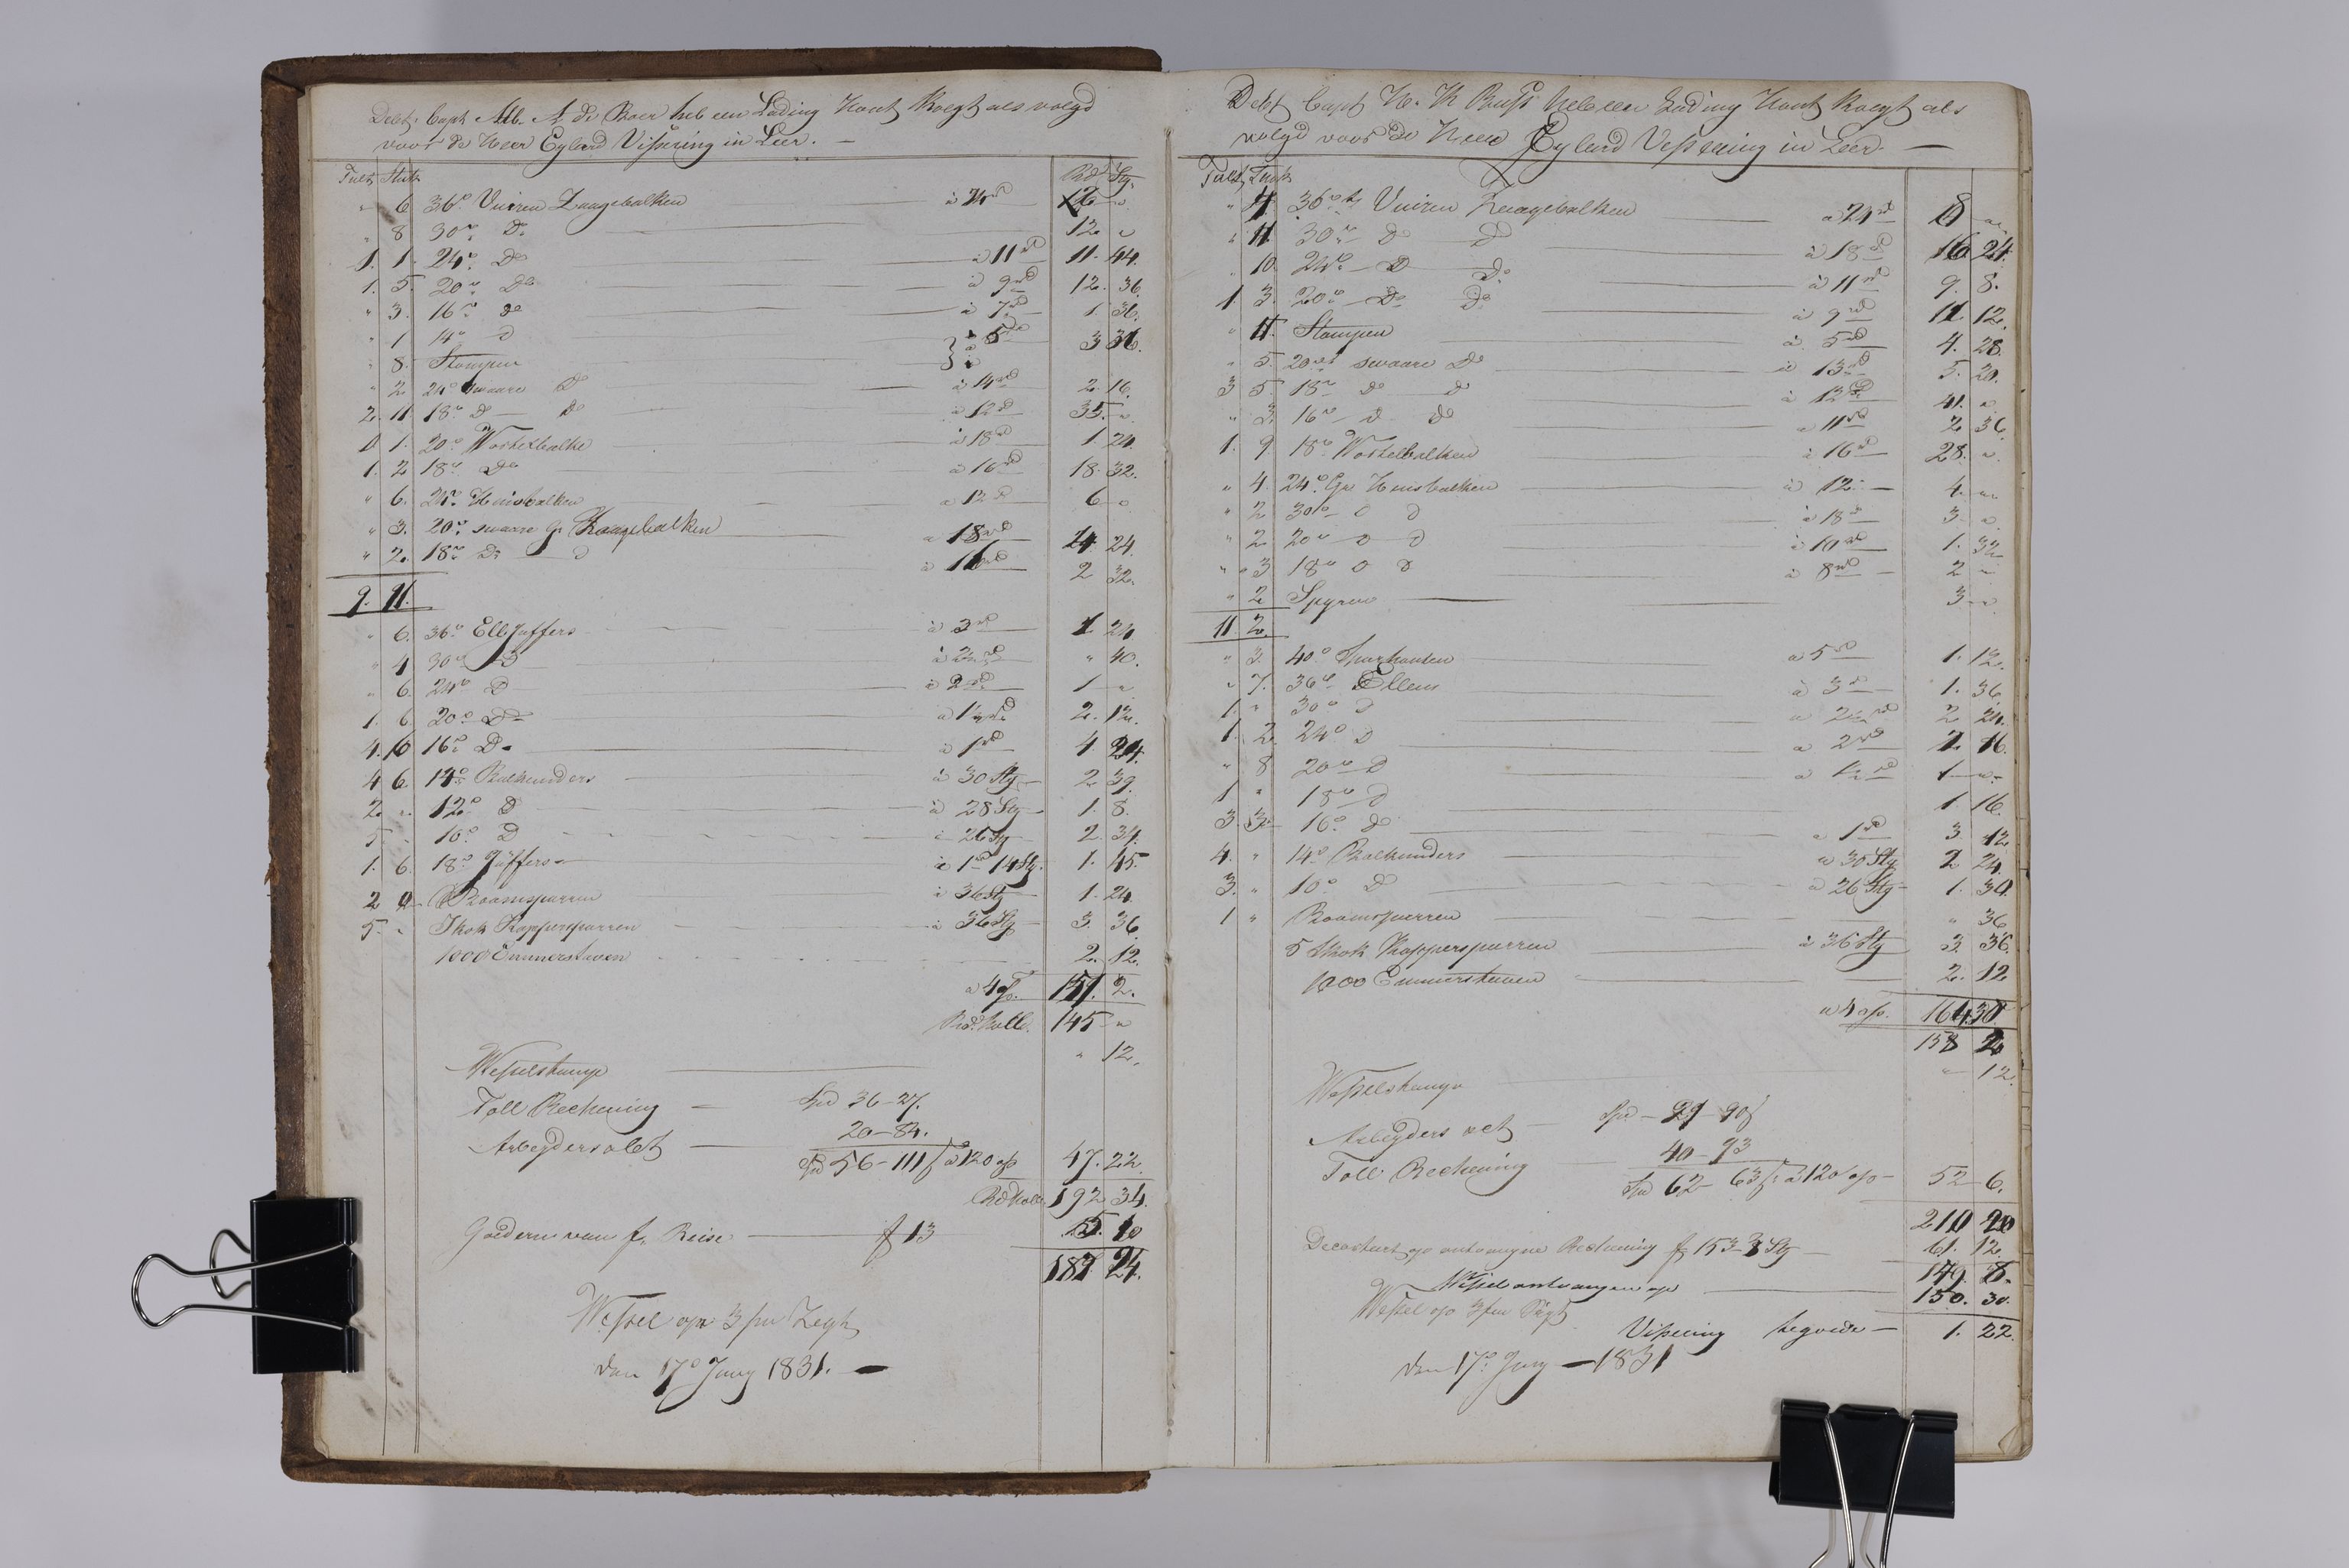 Debt. Capt. Alb. A. de Boer heb een Lading Hout Kogt als volgd
voor de Heer Eylerd Vissering in Leer. —
Tult Stuk Rd Stg.
" 6 36° Vuiren Zaagebalken à 24 rd 12 "
" 8 30° D° 12. "
1. 1. 24° D° à 11 rd 11. 44.
1. 5. 20° D° à 9 rd 12. 36.
" 3. 16° d° à 7 rd 1. 36.
" 1 14° D à 5 rd
" 8. Stompen 3 36.
" 2 24° swaare D° à 14 rd 2. 16.
2. 11. 18° D° — D° à 12 D 35. "
" 1. 20° Wortelbalke à 18 rd 1. 24
1. 2 18° D° à 16 rd 18. 32.
" 6. 24° Huisbalken à 12 D 6 "
" 3. 20° swaare gr Zaagebalken à 18 rd 4 24.
" 2. 18° D° D à 16 rd 2 32.
9. 11.
" 6. 36° Ell Juffers à 3 rd 1 24
" 4 30° D à 2½ rd " 40.
" 6. 24° D à 2 rd 1 "
1. 6 20° D° à 1½ rd 2. 12.
4. 10 16° D° à 1 rd 4 24.
4 6. 14° Balkunders à 30 Stg 2. 39.
2. " 12° D à 28 Stg 1. 8.
5. " 10° D à 26 Stg 2. 34.
1. 6. 18° Juffers à 1 rd 14 Stg. 1. 45.
2 " Boomsparren à 36 Stg 1. 24.
5. " Skok Kappersparren à 36 Stg 3. 36.
1000 Emmerstaven 2. 12.
à 4 p. 151. 2.
Rd. Holl. 145 "
Wesselskanp " 12.
Toll Rechening — Spd 36-27.
Arbeydersolet — 20-84.
Spd 56-111 f à 120 p 47. 22.
Rd Holl. 192 34.
Goederen van f. Reise f 13 5. 10
187 24.
Wessel op 3/m Zegt
den 17° Juny 1831. —
Debt Capt H. K Buss heb een Lading Hout Kogt als
volgd voor de Heer Eylerd Vessering in Leer. —
Tult Stuk
" 4 36° Vuiren Zaagebalken à 24 rd 8 "
" 11 30° D° D à 18 rd 16 24.
" 10. 24° D D° à 11 rd 9. 8.
1. 3. 20° D° D° à 9 rd 11. 12.
" 11. Stompen à 5 rd 4. 28.
" 5. 20° swaare D° à 13 rd 5. 20.
3 5. 18° D° D à 12 rd 41. "
" 3. 16° D D° à 11 rd 2 36.
1. 9. 18° Wortelbalken à 16 rd 28. "
" 4. 24° Gr Huisbalken à 12 — 4. "
" 2 30° D D à 18 3 "
" 2 20° D D à 10 rd 1. 32
" 3 18° D D à 8 rd 2 "
" 2 Spyren 3 "
11. 2.
" 3. 40° Sparhouten à 5 rd 1. 12.
" 7. 36° Ellens à 3 1. 36.
1. " 30° D à 2½ rd 2 24.
1. 2 24° D à 2 rd 2. 16.
" 8 20° D à 1½ rd 1 "
1 " 18° D 1. 16.
3. 3. 16° D° à 1 rd 3 12
4. " 14° Balkunders à 30 Stg 2 24.
3. " 10° D à 26 Stg 1. 30.
1 " Boomsparren " 36
5 Skok Kappersparren à 36 Stg 3. 36.
1000 Emmerstaven 2. 12
à 4 p. 164 30
158 2
Wesselskanp " 12.
Arbeyders oet — Spd — 21-90 f
Toll Rechening 40-93
Spd 62-63 f à 120 p 52 6.
210 20
Decortert op ontvangne Rechning f 153-3 Stg 61. 12.
149. 8.
Wessel ontvangen op 150. 30.
Wessel op 3/m Zigt
Vissering tegoede — 1. 22.
den 17° Juny — 1831